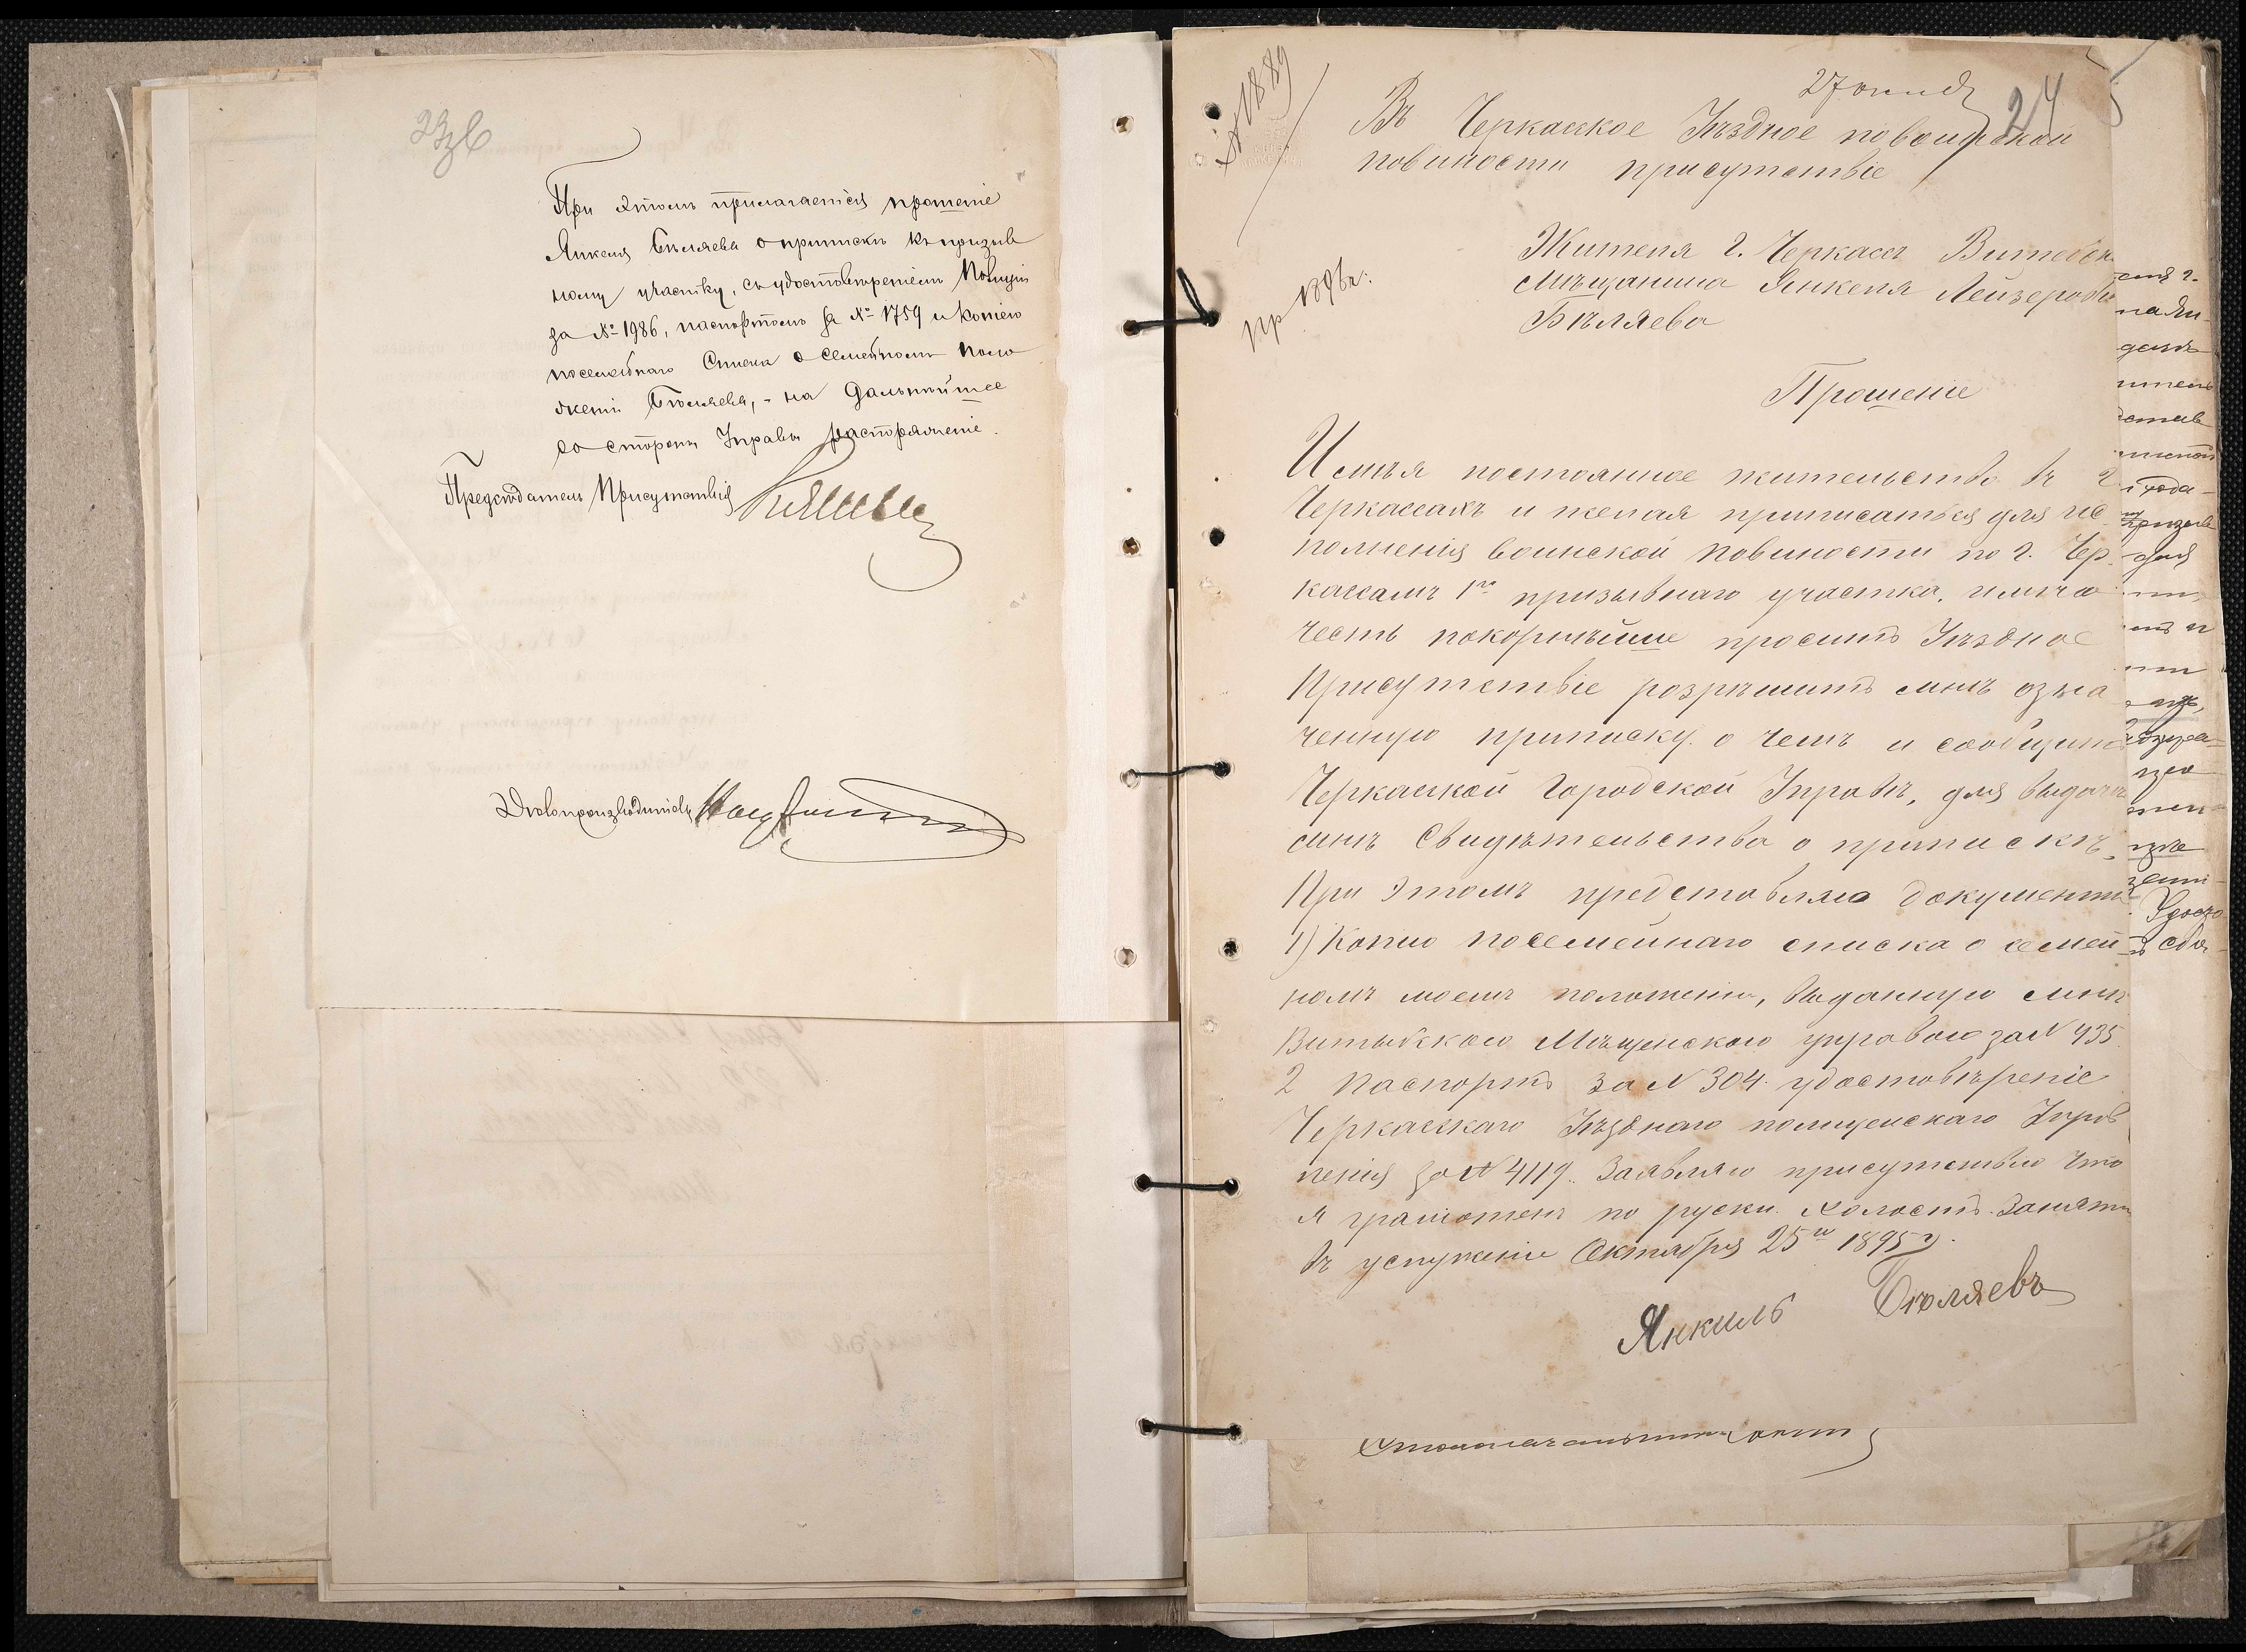 23зв
При этомъ прилагается прошеніе
Янкеля Бѣляева о припискѣ къ призыв
ному участку, съ удостовѣреніемъ Полиціи
за № 1986, паспортомъ за № 1759 и копіею
посемейнаго Списка о семейномъ поло
женіи Бѣляева, - на дальнѣйшее
со стороны Управы распоряженіе.
Предсѣдатель Присутствія
Дѣлопроизводитель
№ 1889
27 октяб
24
Въ Черкаское Уѣздное по воинской
повиности присутствіе
пр 1896 г.
Жителя г. Черкасъ Витебск
мѣщанина Янкеля Лейзерова
Бѣляева
Прошеніе
Имѣя постоянное жительство въ г
Черкассахъ и желая приписаться для ис
полненія воинской повиности по г. Чер
кассамъ 1го призывнаго участка, имѣю
честь покорнѣйше просить Уѣздное
Присутствіе розрѣшить мнѣ озна
ченную приписку. о чемъ и сообщить
Черкаской Городской Управѣ, для выдачи
мнѣ Свидѣтельства о припискѣ.
При этомъ представляю документы
1) Копію посемейнаго списка о семей
номъ моемъ положеніи, выданную мнѣ
Витебскою Мѣщенскою управою за № 435
2 Паспортъ за № 304. удостовѣреніе
Черкаскаго Уѣзднаго полицейскаго Управ
ленія за № 4119. Заявляю присутствію что
я грамотенъ по руски. холостъ. Занятіи
въ услуженіи Октября 25го 1895 г.
Янкиль Бѣляевъ